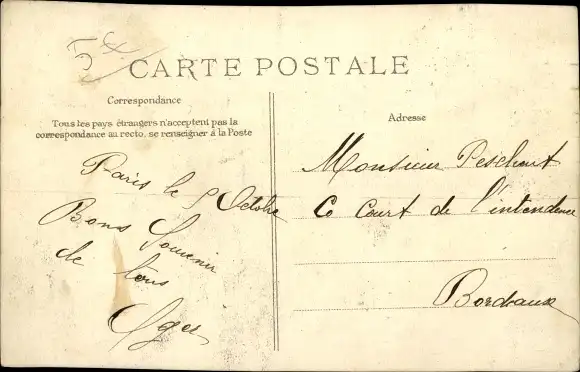 5
CARTE POSTALE
Correspondance
Tous les pays étrangers n'acceptent pas la
correspondance au recto, se renseigner à la Poste
Paris le 9 Octobre
Bons Souvenir
de tous
Adresse
Monsieur
Court de l'intendence
Bordeaux